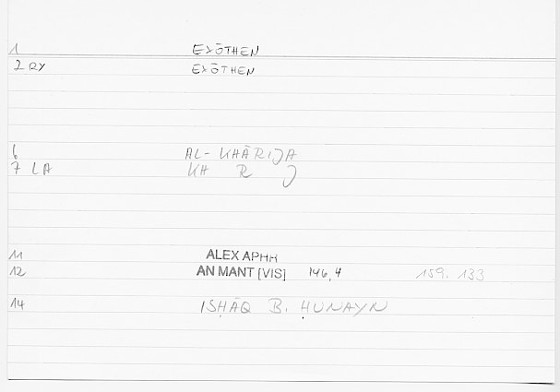 1 EXŌTHEN
2 RY EXŌTHEN
6 AL-KHĀRIJA
7 LA KH R J
11 ALEX APHR
12 AN MANT [VIS] 146,4 159.133
14 ISḤĀQ B. ḤUNAYN